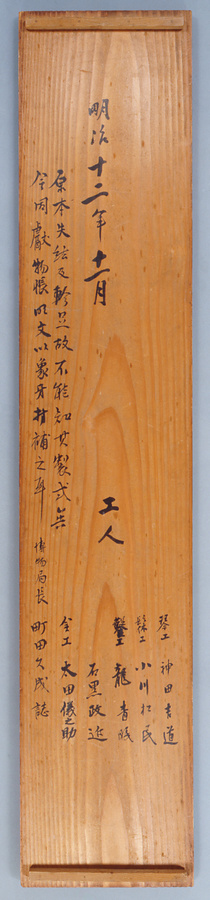 明治十二年十一月
工人
琴工 神田
髹工 小川松民
龍
石黒政近
金工 太田儀之助
原本失絃及軫足故不能知其製式矣
今因獻物帳明文以象牙補之耳 博物局長 町田久成誌